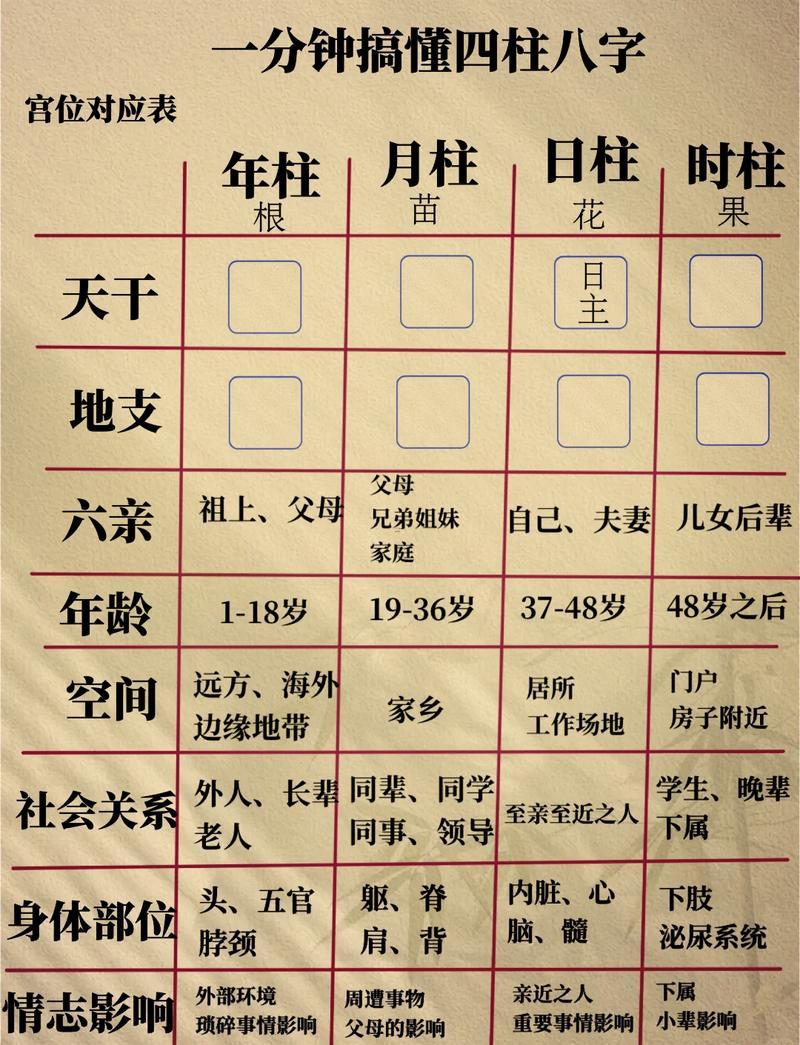 一分钟搞懂四柱八字
宫位对应表
年柱 月柱 日柱 时柱
根 苗 花 果
天干 日主
地支
六亲 祖上、父母 父母 兄弟姐妹 家庭 自己、夫妻 儿女后辈
年龄 1-18岁 19-36岁 37-48岁 48岁之后
空间 远方、海外 边缘地带 家乡 居所 工作场地 门户 房子附近
社会关系 外人、长辈 老人 同辈、同学 同事、领导 至亲至近之人 学生、晚辈 下属
身体部位 头、五官 脖颈 躯、脊 肩、背 内脏、心 脑、髓 下肢 泌尿系统
情志影响 外部环境 琐碎事情影响 周遭事物 父母的影响 亲近之人 重要事情影响 下属 小辈影响